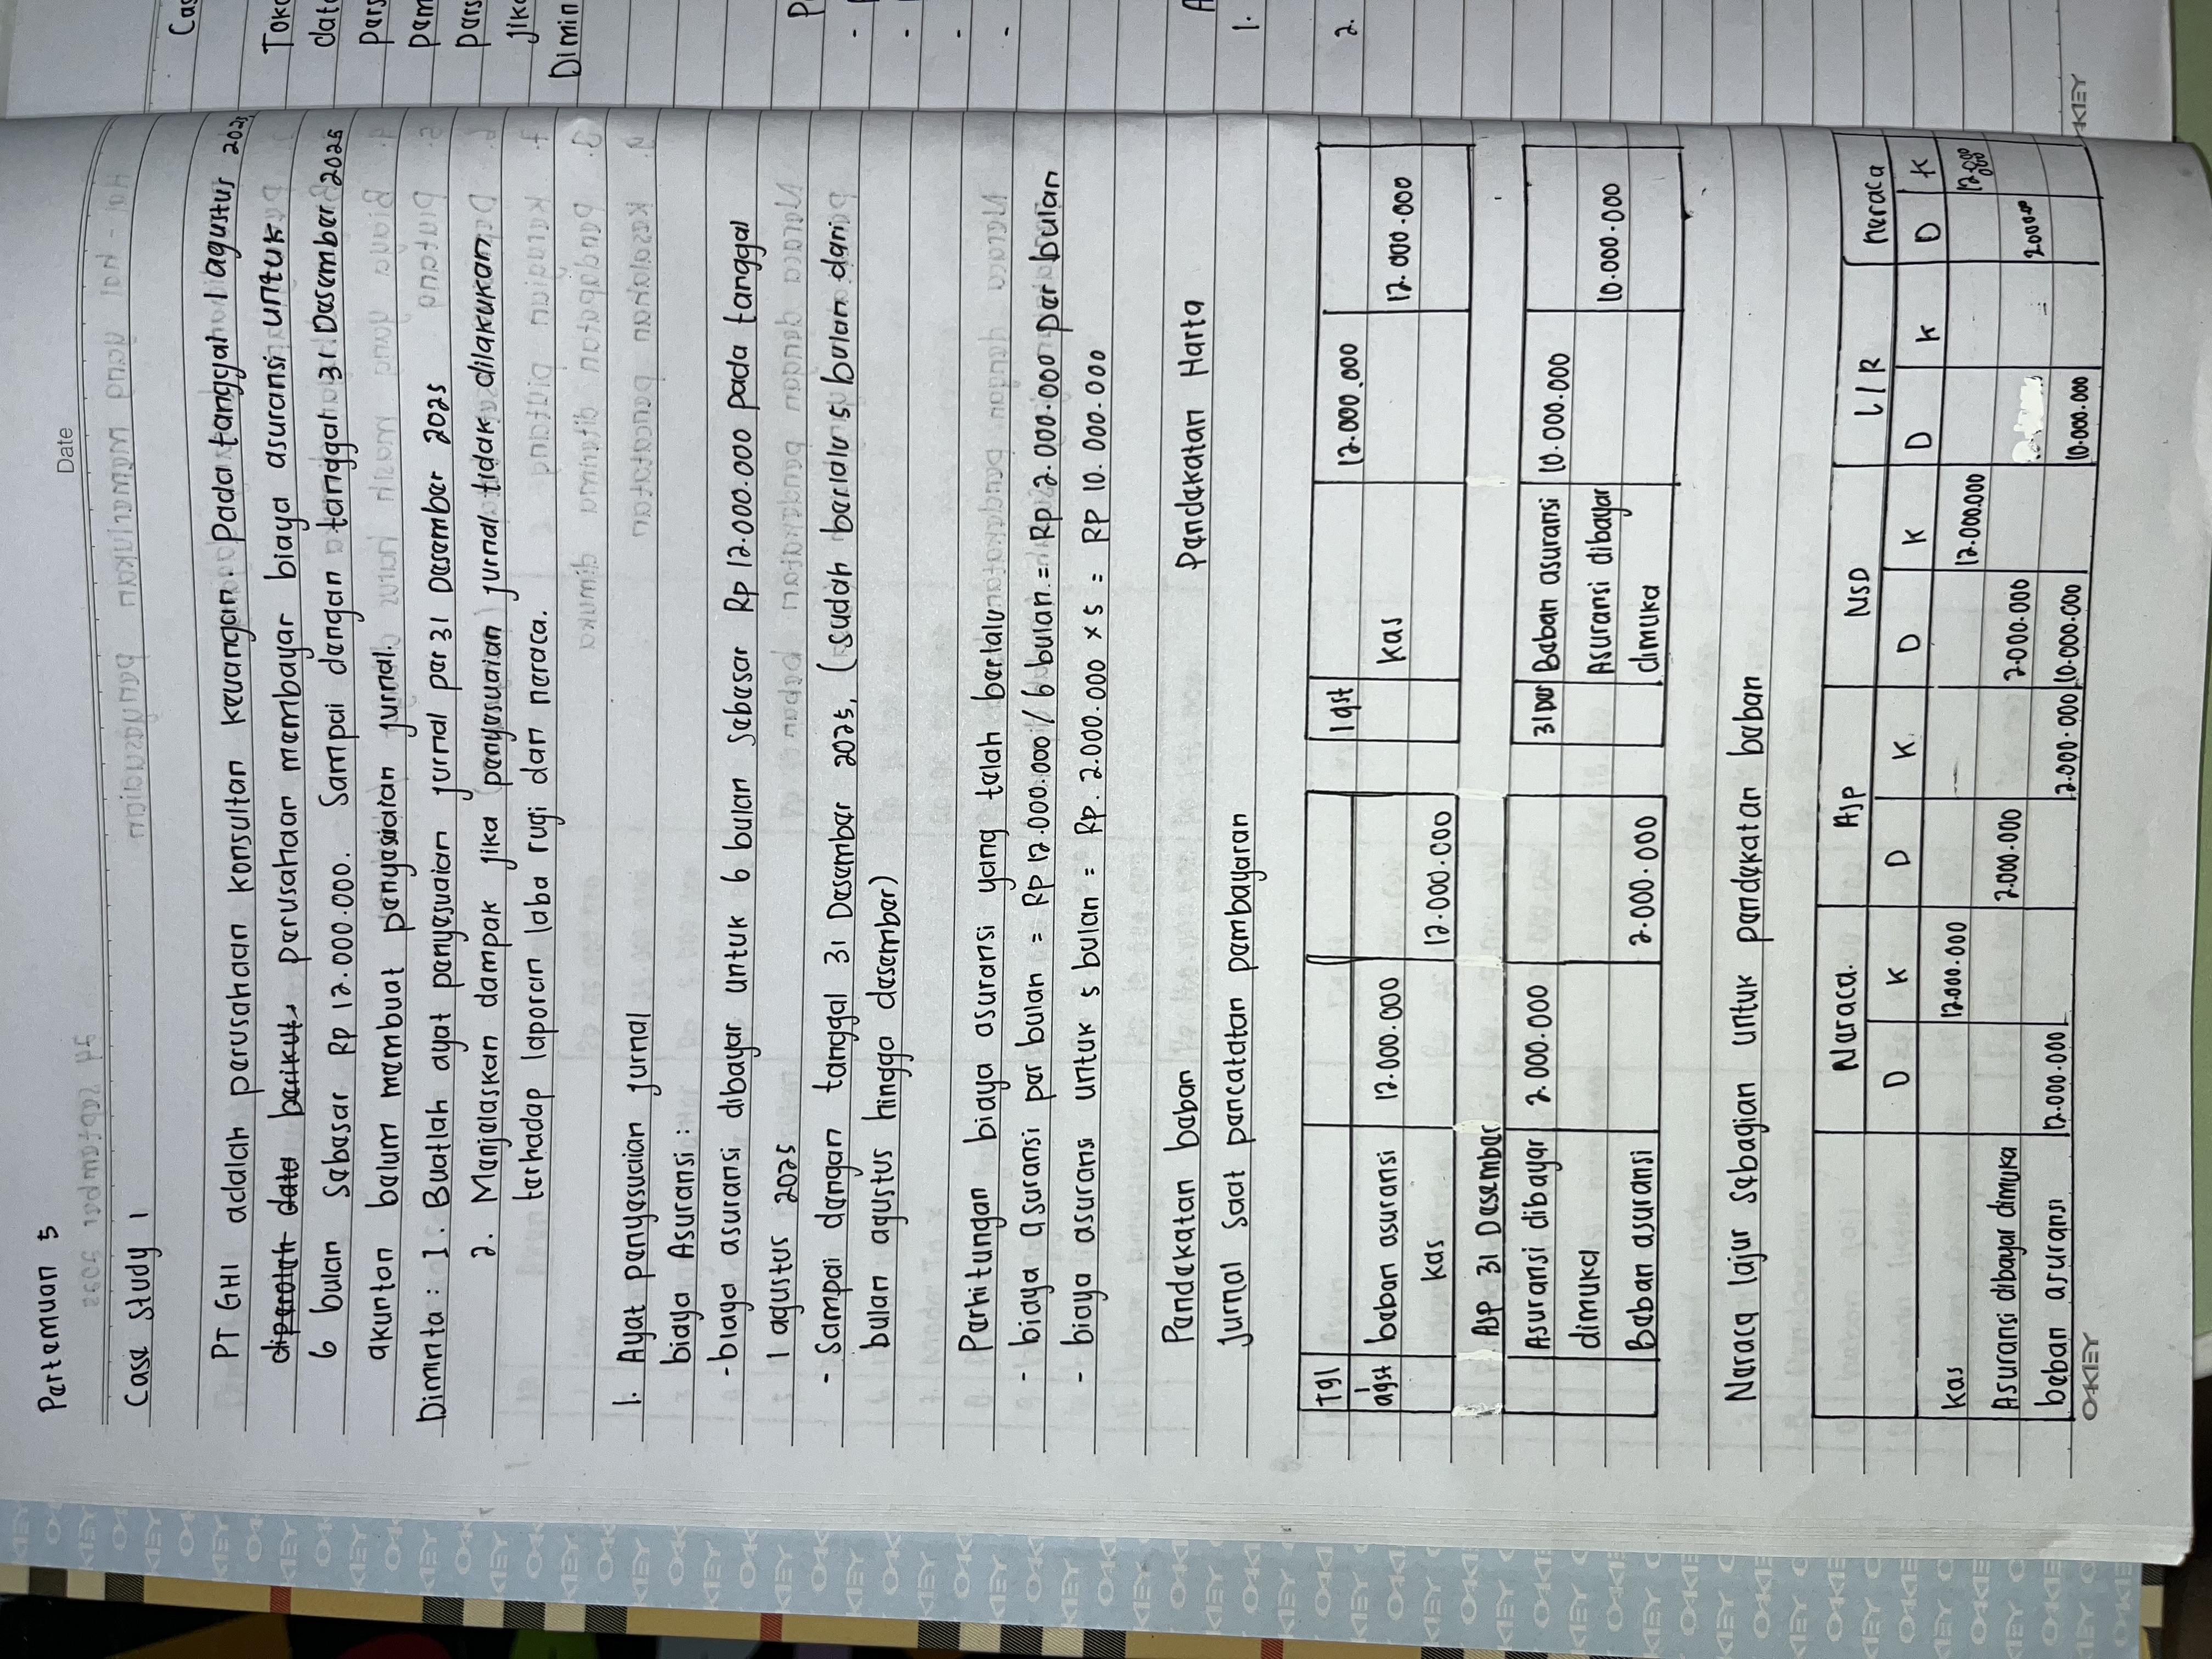 Date
Pertemuan 5
Case Study 1
PT GHI adalah perusahaan konsultan keuangan. Pada tanggal 1 agustus 2025
diperoleh data berikut perusahaan membayar biaya asuransi untuk
6 bulan sebesar Rp 12.000.000. Sampai dengan tanggal 31 Desember 2025
akuntan belum membuat penyesuaian jurnal.
Diminta : 1. Buatlah ayat penyesuaian jurnal per 31 Desember 2025
2. Menjelaskan dampak jika (penyesuaian) jurnal tidak dilakukan
terhadap laporan laba rugi dan neraca.
1. Ayat penyesuaian jurnal
biaya Asuransi :
- biaya asuransi dibayar untuk 6 bulan sebesar Rp 12.000.000 pada tanggal
1 agustus 2025
- Sampai dengan tanggal 31 Desember 2025, (sudah berlalu 5 bulan dari
bulan agustus hingga desember)
Perhitungan biaya asuransi yang telah berlalu
- biaya asuransi per bulan = Rp 12.000.000 / 6 bulan = Rp 2.000.000 per bulan
- biaya asuransi untuk 5 bulan = Rp. 2.000.000 x 5 = Rp 10.000.000
Pendekatan beban Pendekatan Harta
Jurnal saat pencatatan pembayaran
Tgl
1 agst beban asuransi 12.000.000
kas 12.000.000
AJP 31 Desember
Asuransi dibayar 2.000.000
dimuka
Beban asuransi 2.000.000
1 gst 12.000.000
kas 12.000.000
31 Des Beban asuransi 10.000.000
Asuransi dibayar 10.000.000
dimuka
Neraca lajur sebagian untuk pendekatan beban
Neraca AJP NSD L/R neraca
D K D K D K D K D K
kas 12.000.000 12.000.000 12.000.000
Asuransi dibayar dimuka 2.000.000 2.000.000
beban asuransi 12.000.000 2.000.000 10.000.000 10.000.00
OKEY
Cas
Toko
data
pers
pem
pers
jika
Dimin
P
-
-
-
-
A
1.
2.
OKEY
KEY